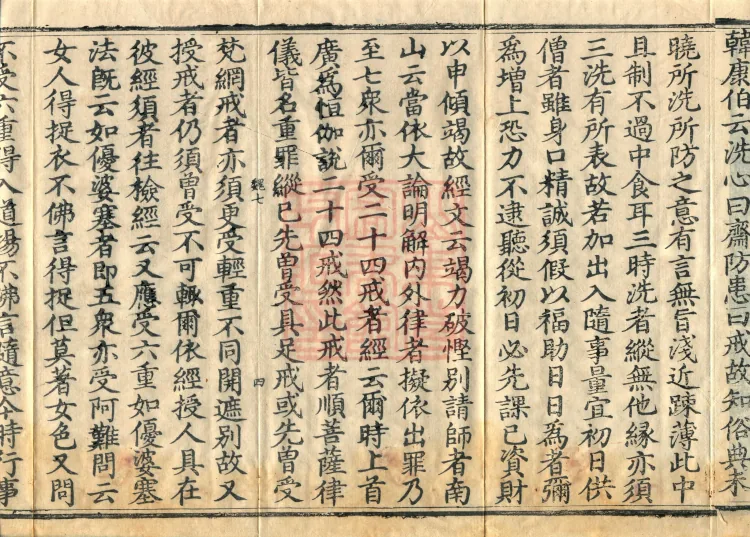 韓康伯云洗心曰齋防患曰戒故知俗典未
曉所洗所防之意有言無旨淺近踈薄此中
且制不過中食耳三時洗者縱無他緣亦須
三洗有所表故若加出入隨事量宜初日供
僧者雖身口精誠須假以福助日日為者彌
為增上恐力不逮聽從初日必先課已資財
以申傾竭故經文云竭力破慳別請師者南
山云當依大論明解內外律者擬依出罪乃
至七衆亦爾受二十四戒者經云爾時上首
廣為恒伽說二十四戒然此戒者順菩薩律
儀皆名重罪縱已先曾受具足戒或先曾受
魏七
四
梵網戒者亦須更受輕重不同開遮別故又
授戒者仍須曾受不可輙爾依經授人具在
彼經須者往檢經云又應受六重如優婆塞
法旣云如優婆塞者即五衆亦受阿難問云
女人得捉衣不佛言得捉但莫著女色又問
不受六重得入道場不佛言隨意今時行事